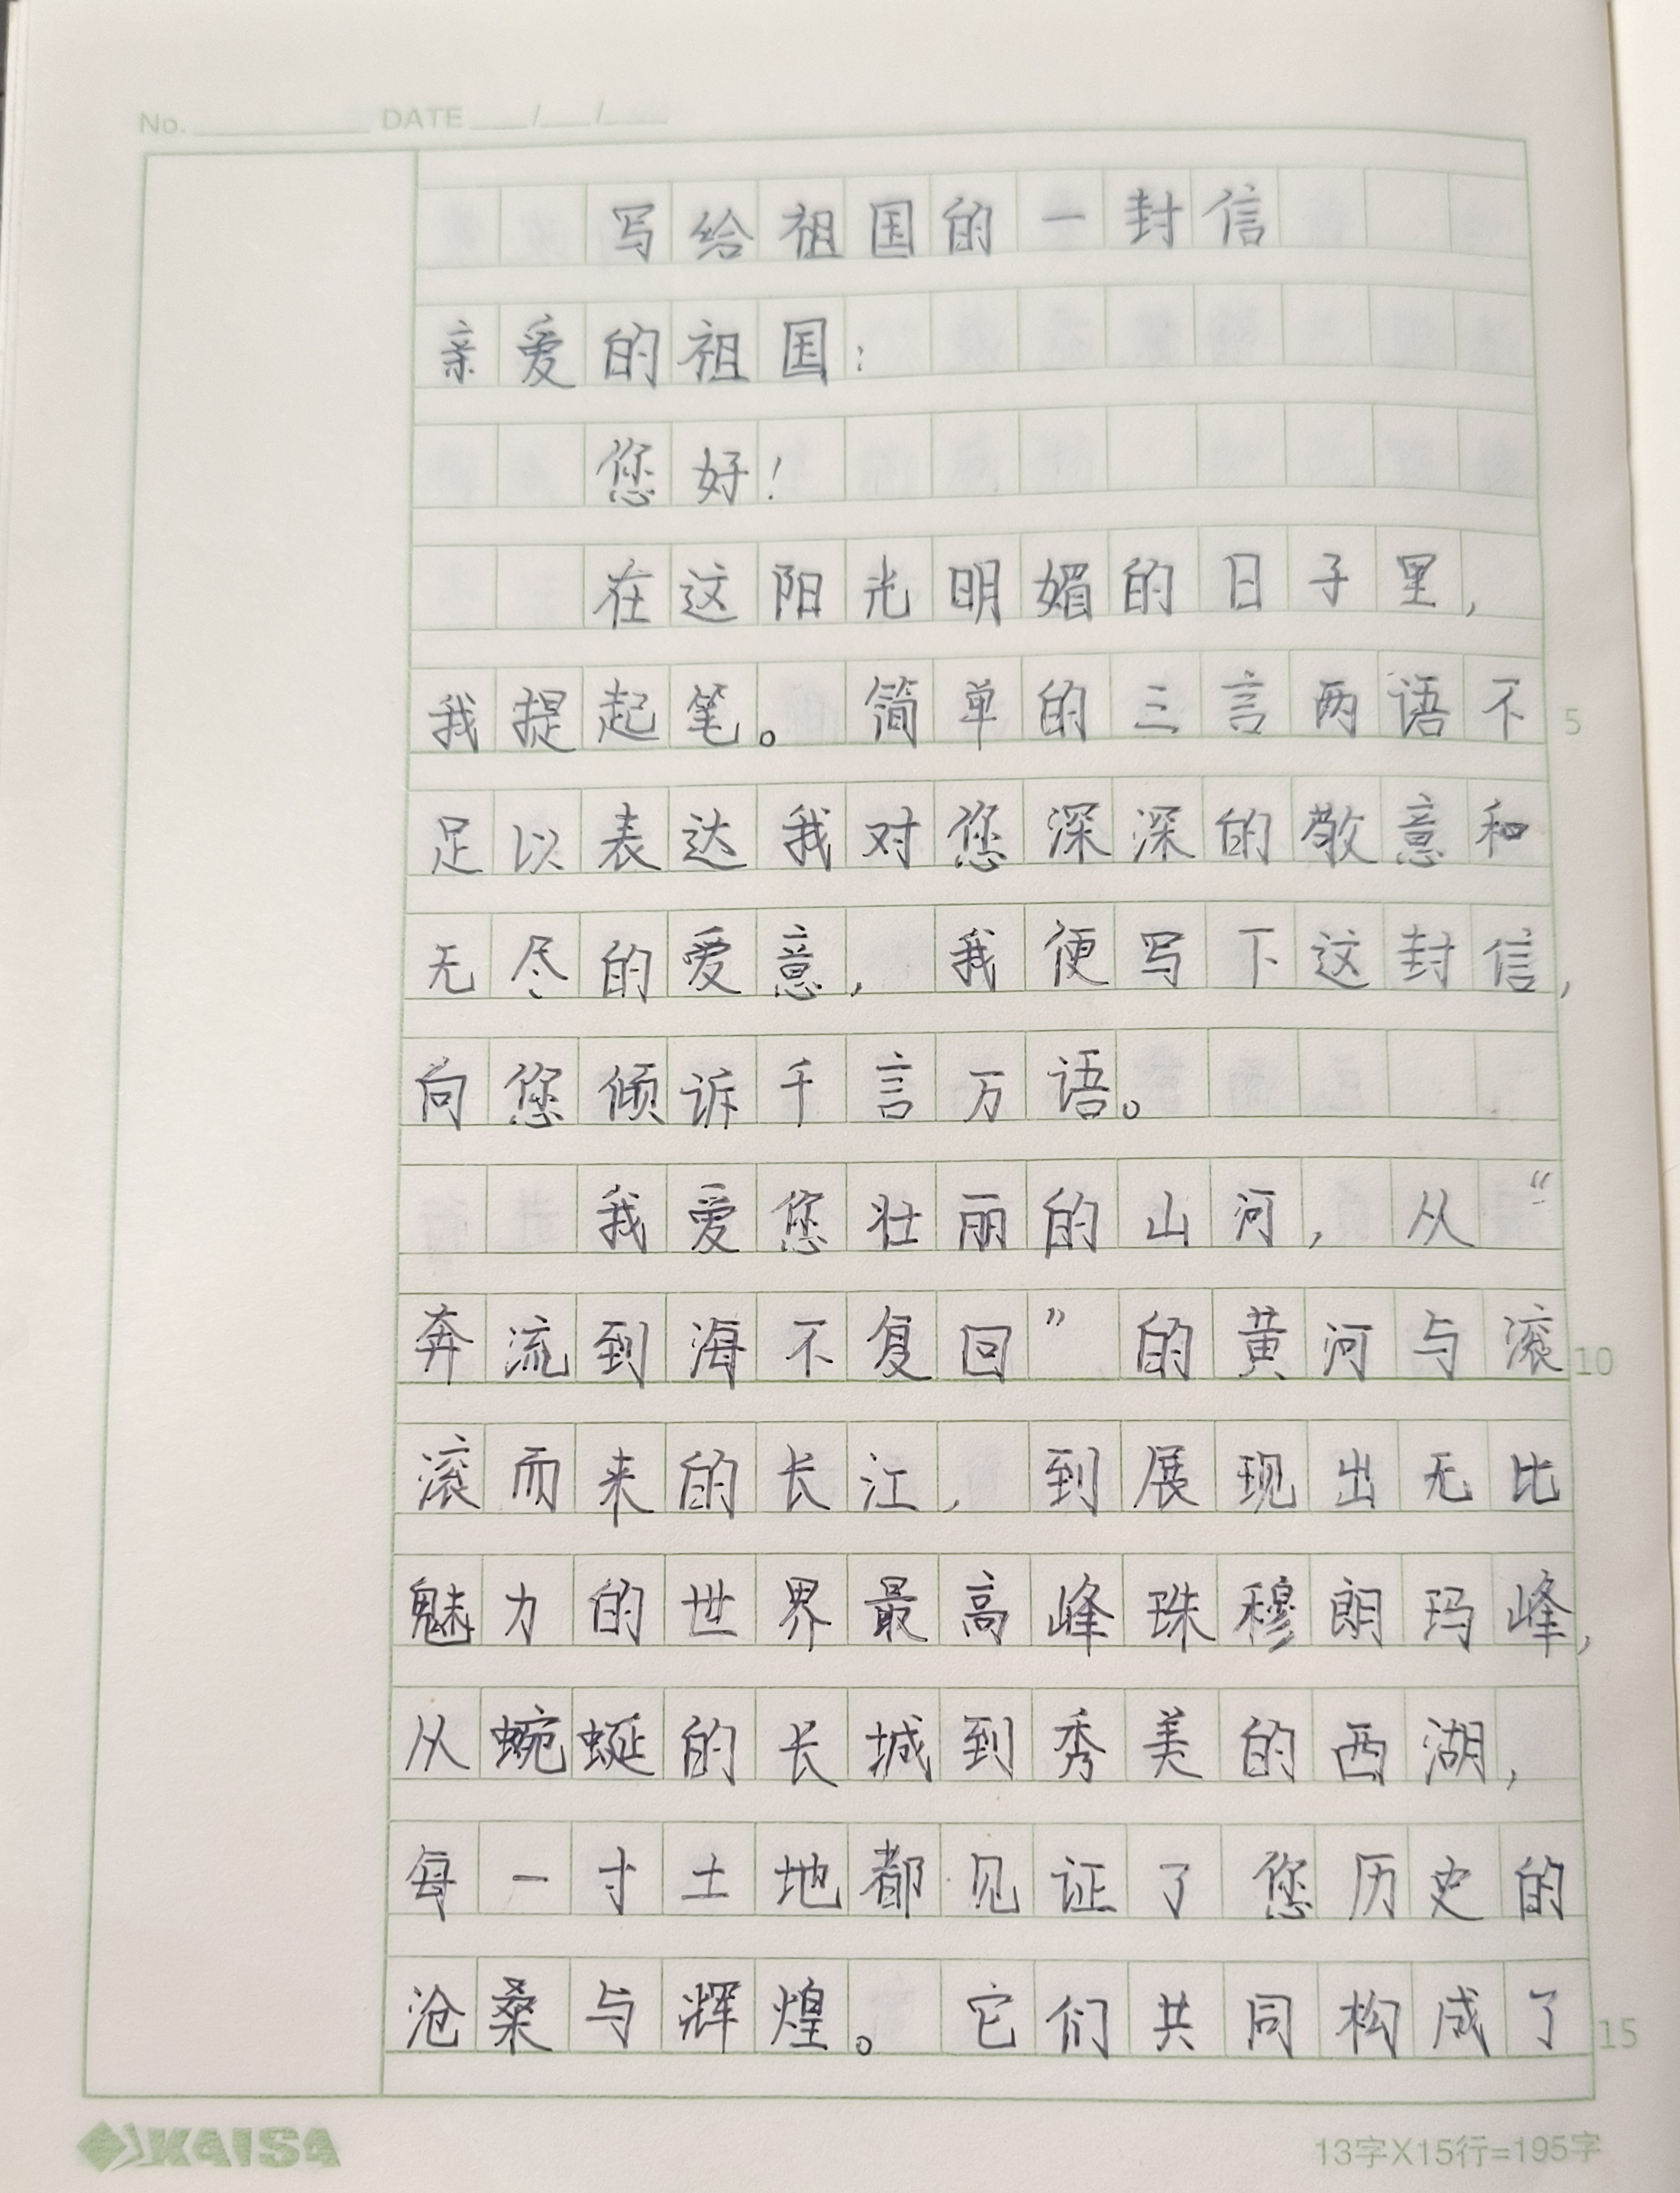 No. DATE / /
写给祖国的一封信
亲爱的祖国：
您好！
在这阳光明媚的日子里，
我提起笔。简单的三言两语不
5
足以表达我对您深深的敬意和
无尽的爱意，我便写下这封信，
向您倾诉千言万语。
我爱您壮丽的山河，从“
奔流到海不复回”的黄河与滚
10
滚而来的长江，到展现出无比
魅力的世界最高峰珠穆朗玛峰，
从蜿蜒的长城到秀美的西湖，
每一寸土地都见证了您历史的
沧桑与辉煌。它们共同构成了
15
KAISA
13字X15行=195字